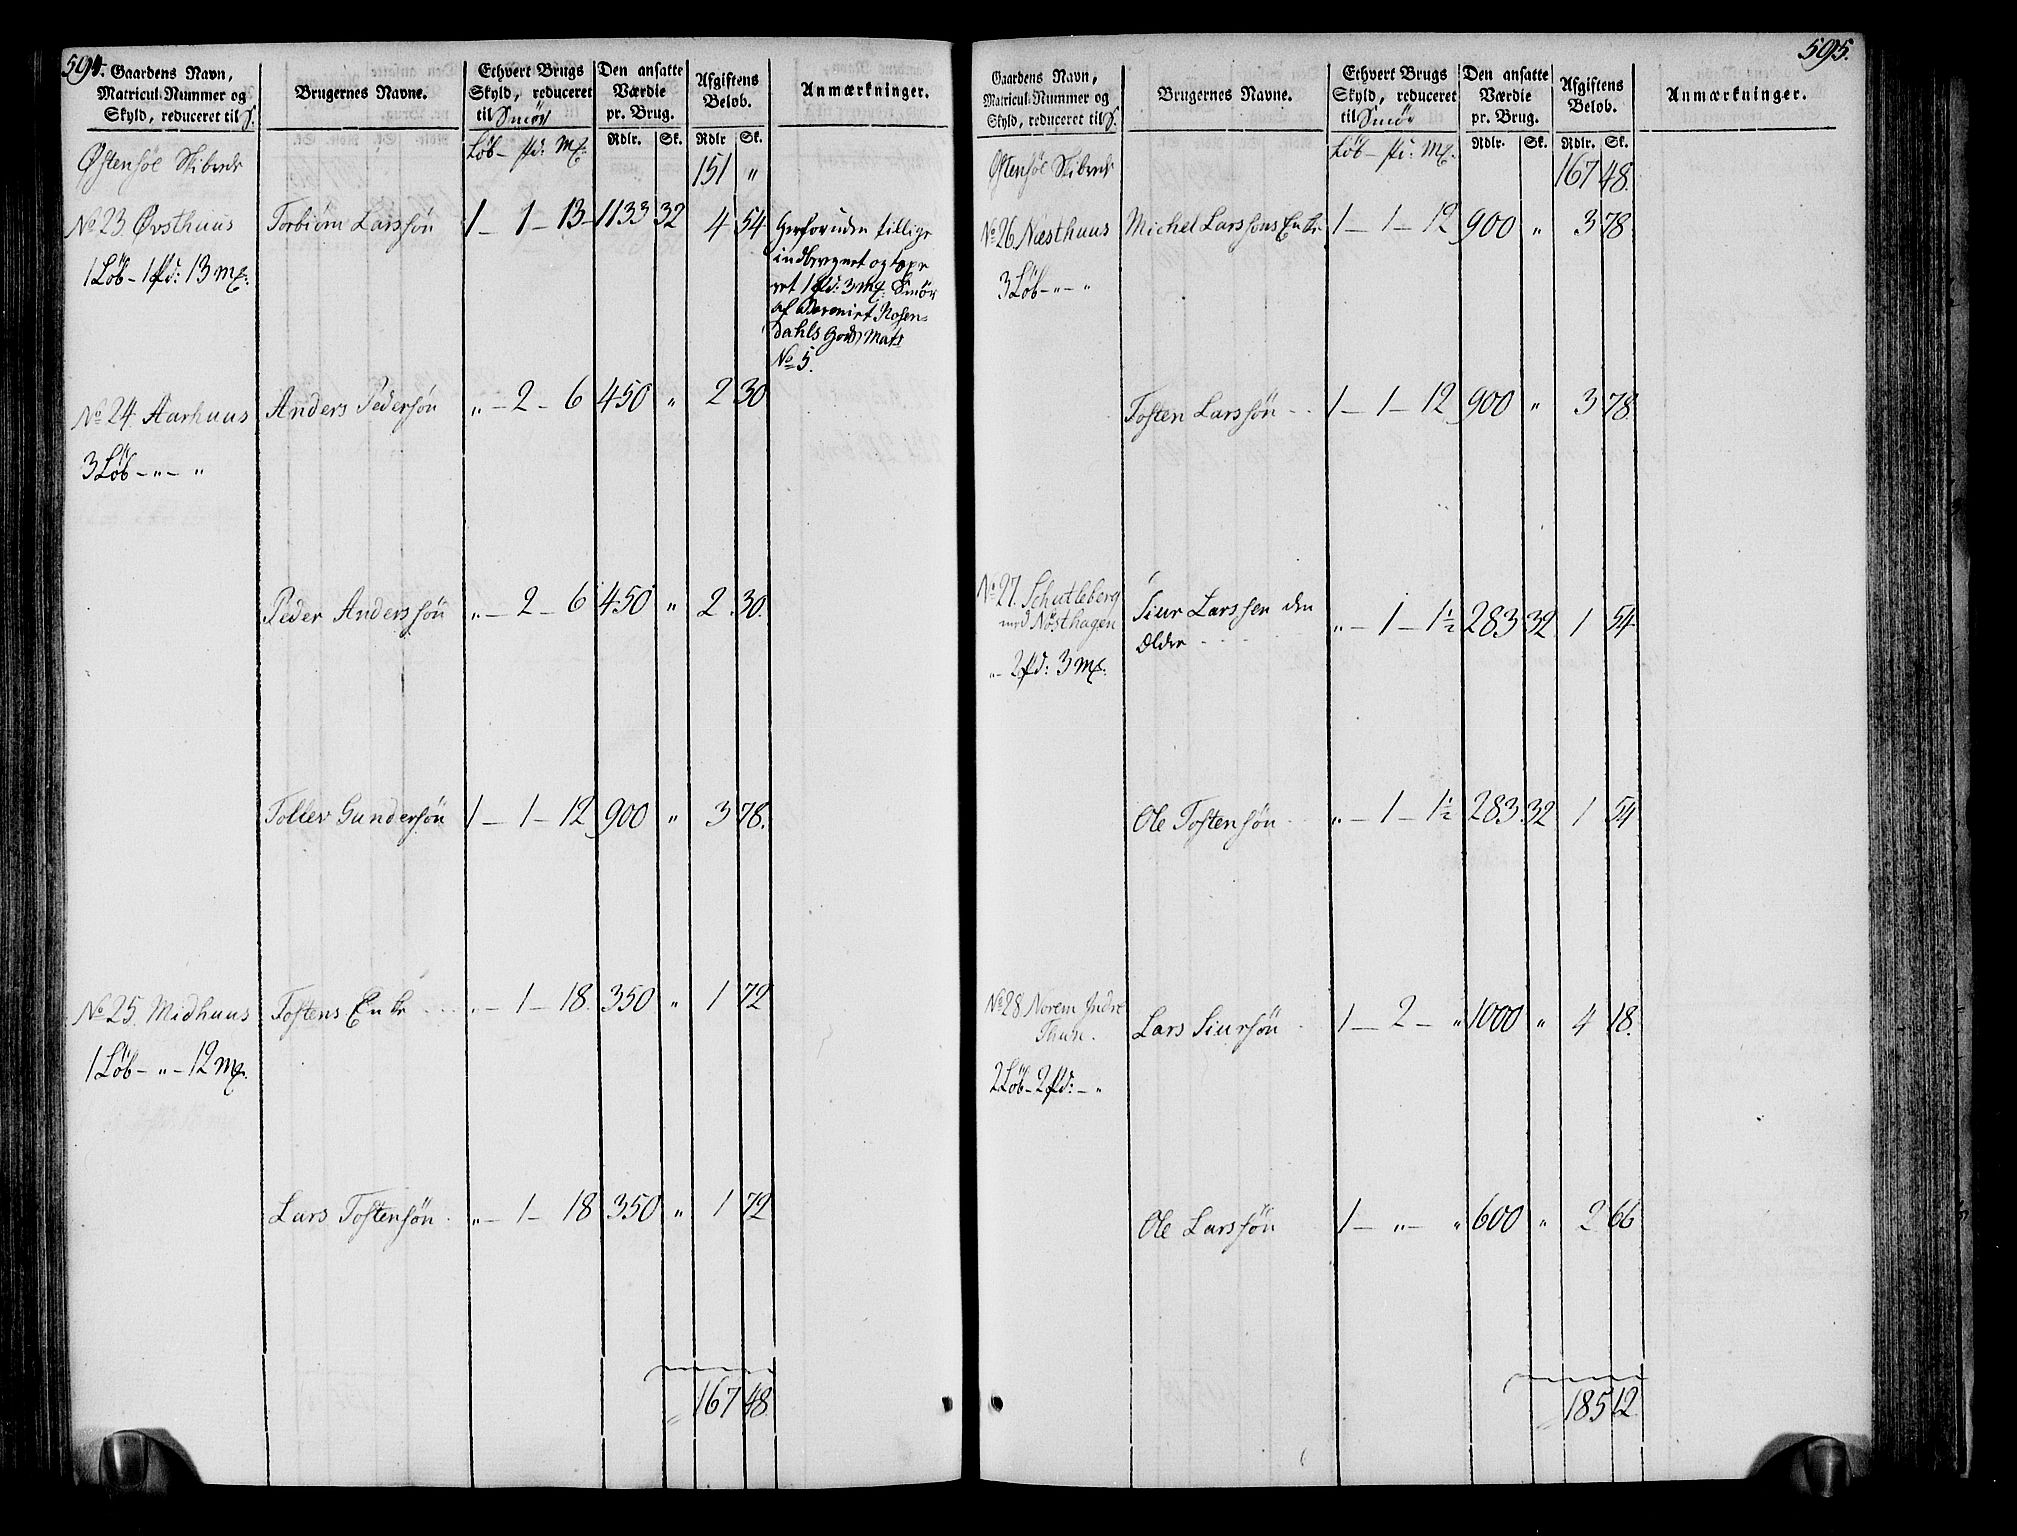 594.
Gaardens Navn, Matricul-Nummer og Skyld, reduceret til S. | Brugernes Navne. | Ethvert Brugs Skyld, reduceret til Smör | Den ansatte Værdie pr. Brug. | Afgiftens Beløb. | Anmærkninger.
Löb - pd: Mk: | Rdlr. | Sk. | Rdlr | Sk.
Østensöe Skibrede 151 "
No 23. Øvsthuus Torbiörn Larssön 1 - 1 - 13 - 1133 32 4 54 Herforuden tillige
1 Löb - 1 pd: 13 mk: indberegnet og taxe
ret 1 pd: 3 mk: Smör
af Baroniet Rosen=
dahls Gods Matr
No 5.
No 24. Aarhuus Anders Pedersön " - 2 - 6 450 " 2 30
3 Löb - " - "
Peder Anderssön " - 2 - 6 450 " 2 30.
Tollev Gundersön 1 - 1 - 12 900 " 3 78.
No 25. Midhuus Tostens Enke " - 1 - 18. 350 " 1 72
1 Löb - " - 12 mk.
Lars Tostensön " - 1 - 18 350 " 1 72
167 48
595.
Gaardens Navn, Matricul-Nummer og Skyld, reduceret til S. | Brugernes Navne. | Ethvert Brugs Skyld, reduceret til Smör | Den ansatte Værdie pr. Brug. | Afgiftens Beløb. | Anmærkninger.
Löb - pd: Mk. | Rdlr. | Sk. | Rdlr. | Sk.
Østensöe Skibrede 167 48.
No 26. Næsthuus Michel Larssöns Enke 1 - 1 - 12 900 " 3 78
3 Löb - " - "
Tosten Larssön 1 - 1 - 12 900 " 3 78
No 27. Schutleberg Siur Larssen den
med Nösthagen Ældre " - 1 - 1½ 283 32 1 54
" - 2 pd: 3 mk.
Ole Tostensön " - 1 - 1½ 283 32 1 54
No 28 Norem Indre
Thune. Lars Siursön 1 - 2 - " 1000 " 4 18.
2 Löb - 2 pd: - "
Ole Larssön 1 - " - " 600 " 2 66
185 12